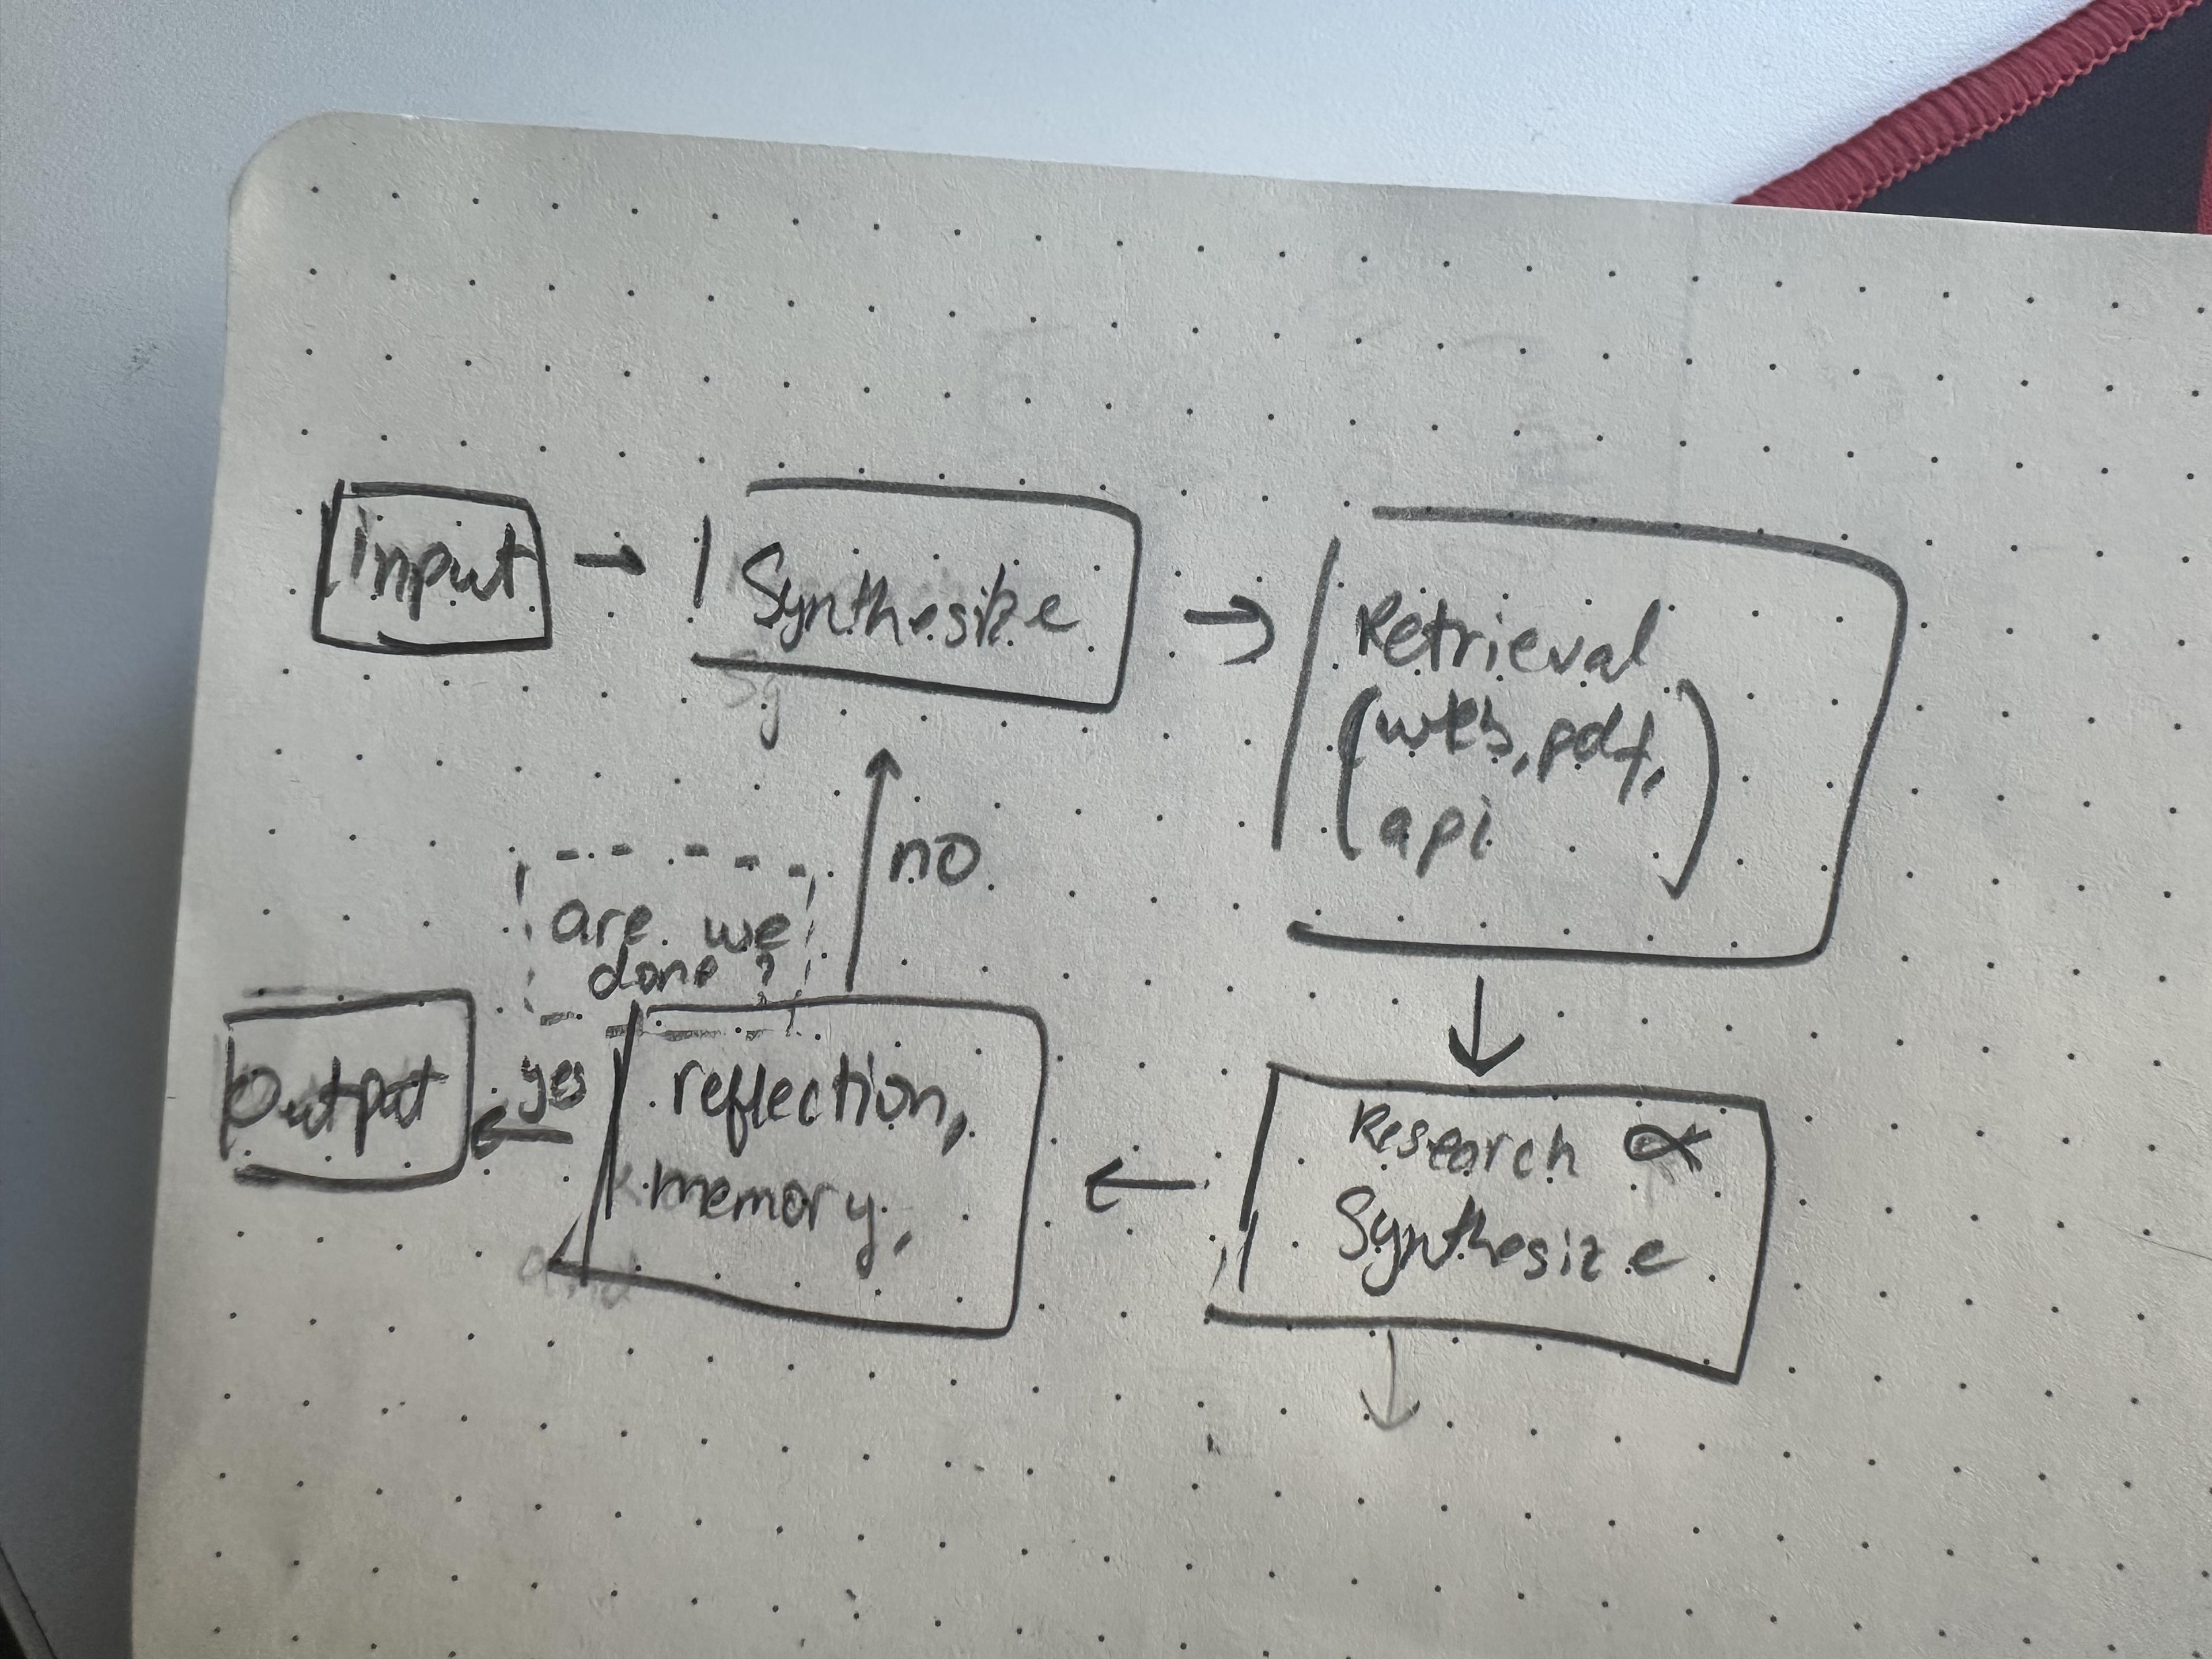 input
Synthesize
Retrieval
(web, pdf,
api)
no
are we
done?
Output
yes
reflection,
memory,
Research &
Synthesize